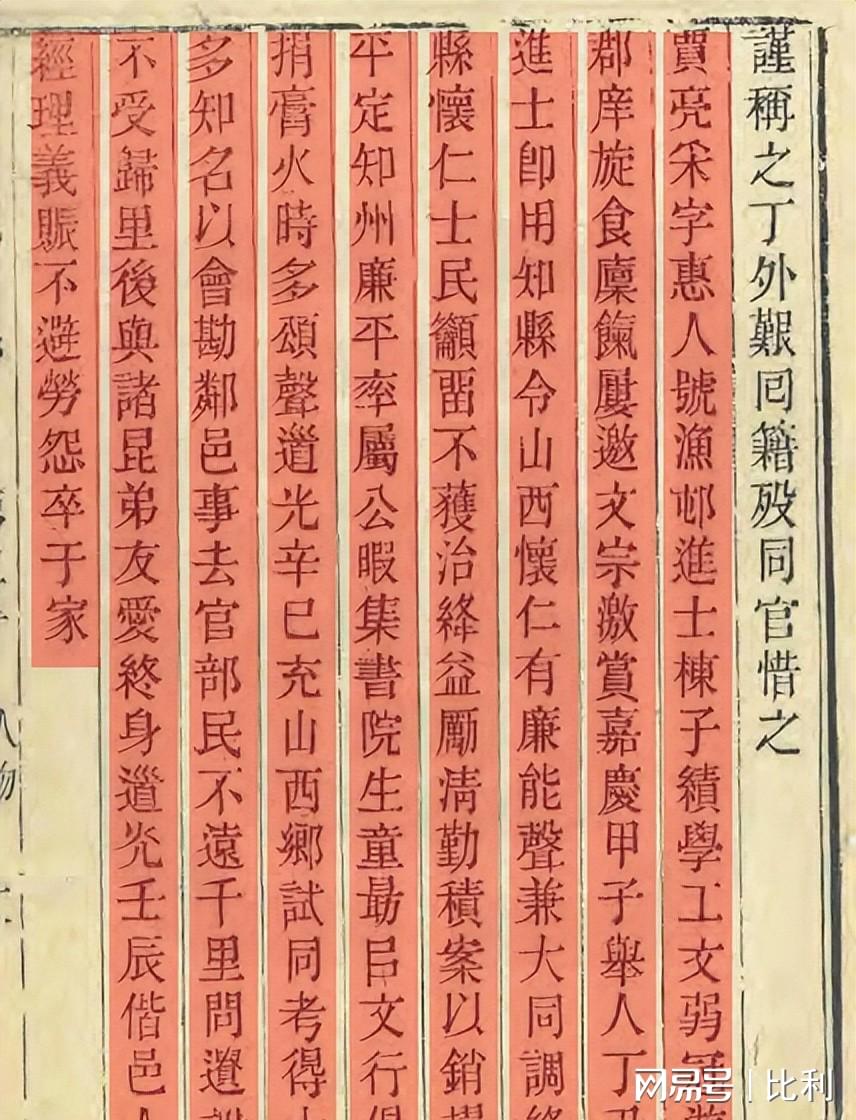 謹稱之丁外艱回籍歿同官惜之
賈亮采字惠人號漁邨進士棟子績學工文弱冠
郡庠旋食廩餼屢邀文宗激賞嘉慶甲子舉人丁
進士卽用知縣令山西懷仁有廉能聲兼大同調
縣懷仁士民籲畱不獲治絳益勵淸勤積案以銷
平定知州廉平率屬公暇集書院生童勗吕文行
捐膏火時多頌聲道光辛巳充山西鄉試同考得
多知名以會勘鄰邑事去官部民不遠千里問遺
不受歸里後與諸昆弟友愛終身道光壬辰偕邑
經理義賑不避勞怨卒于家
人物
网易号 | 比利